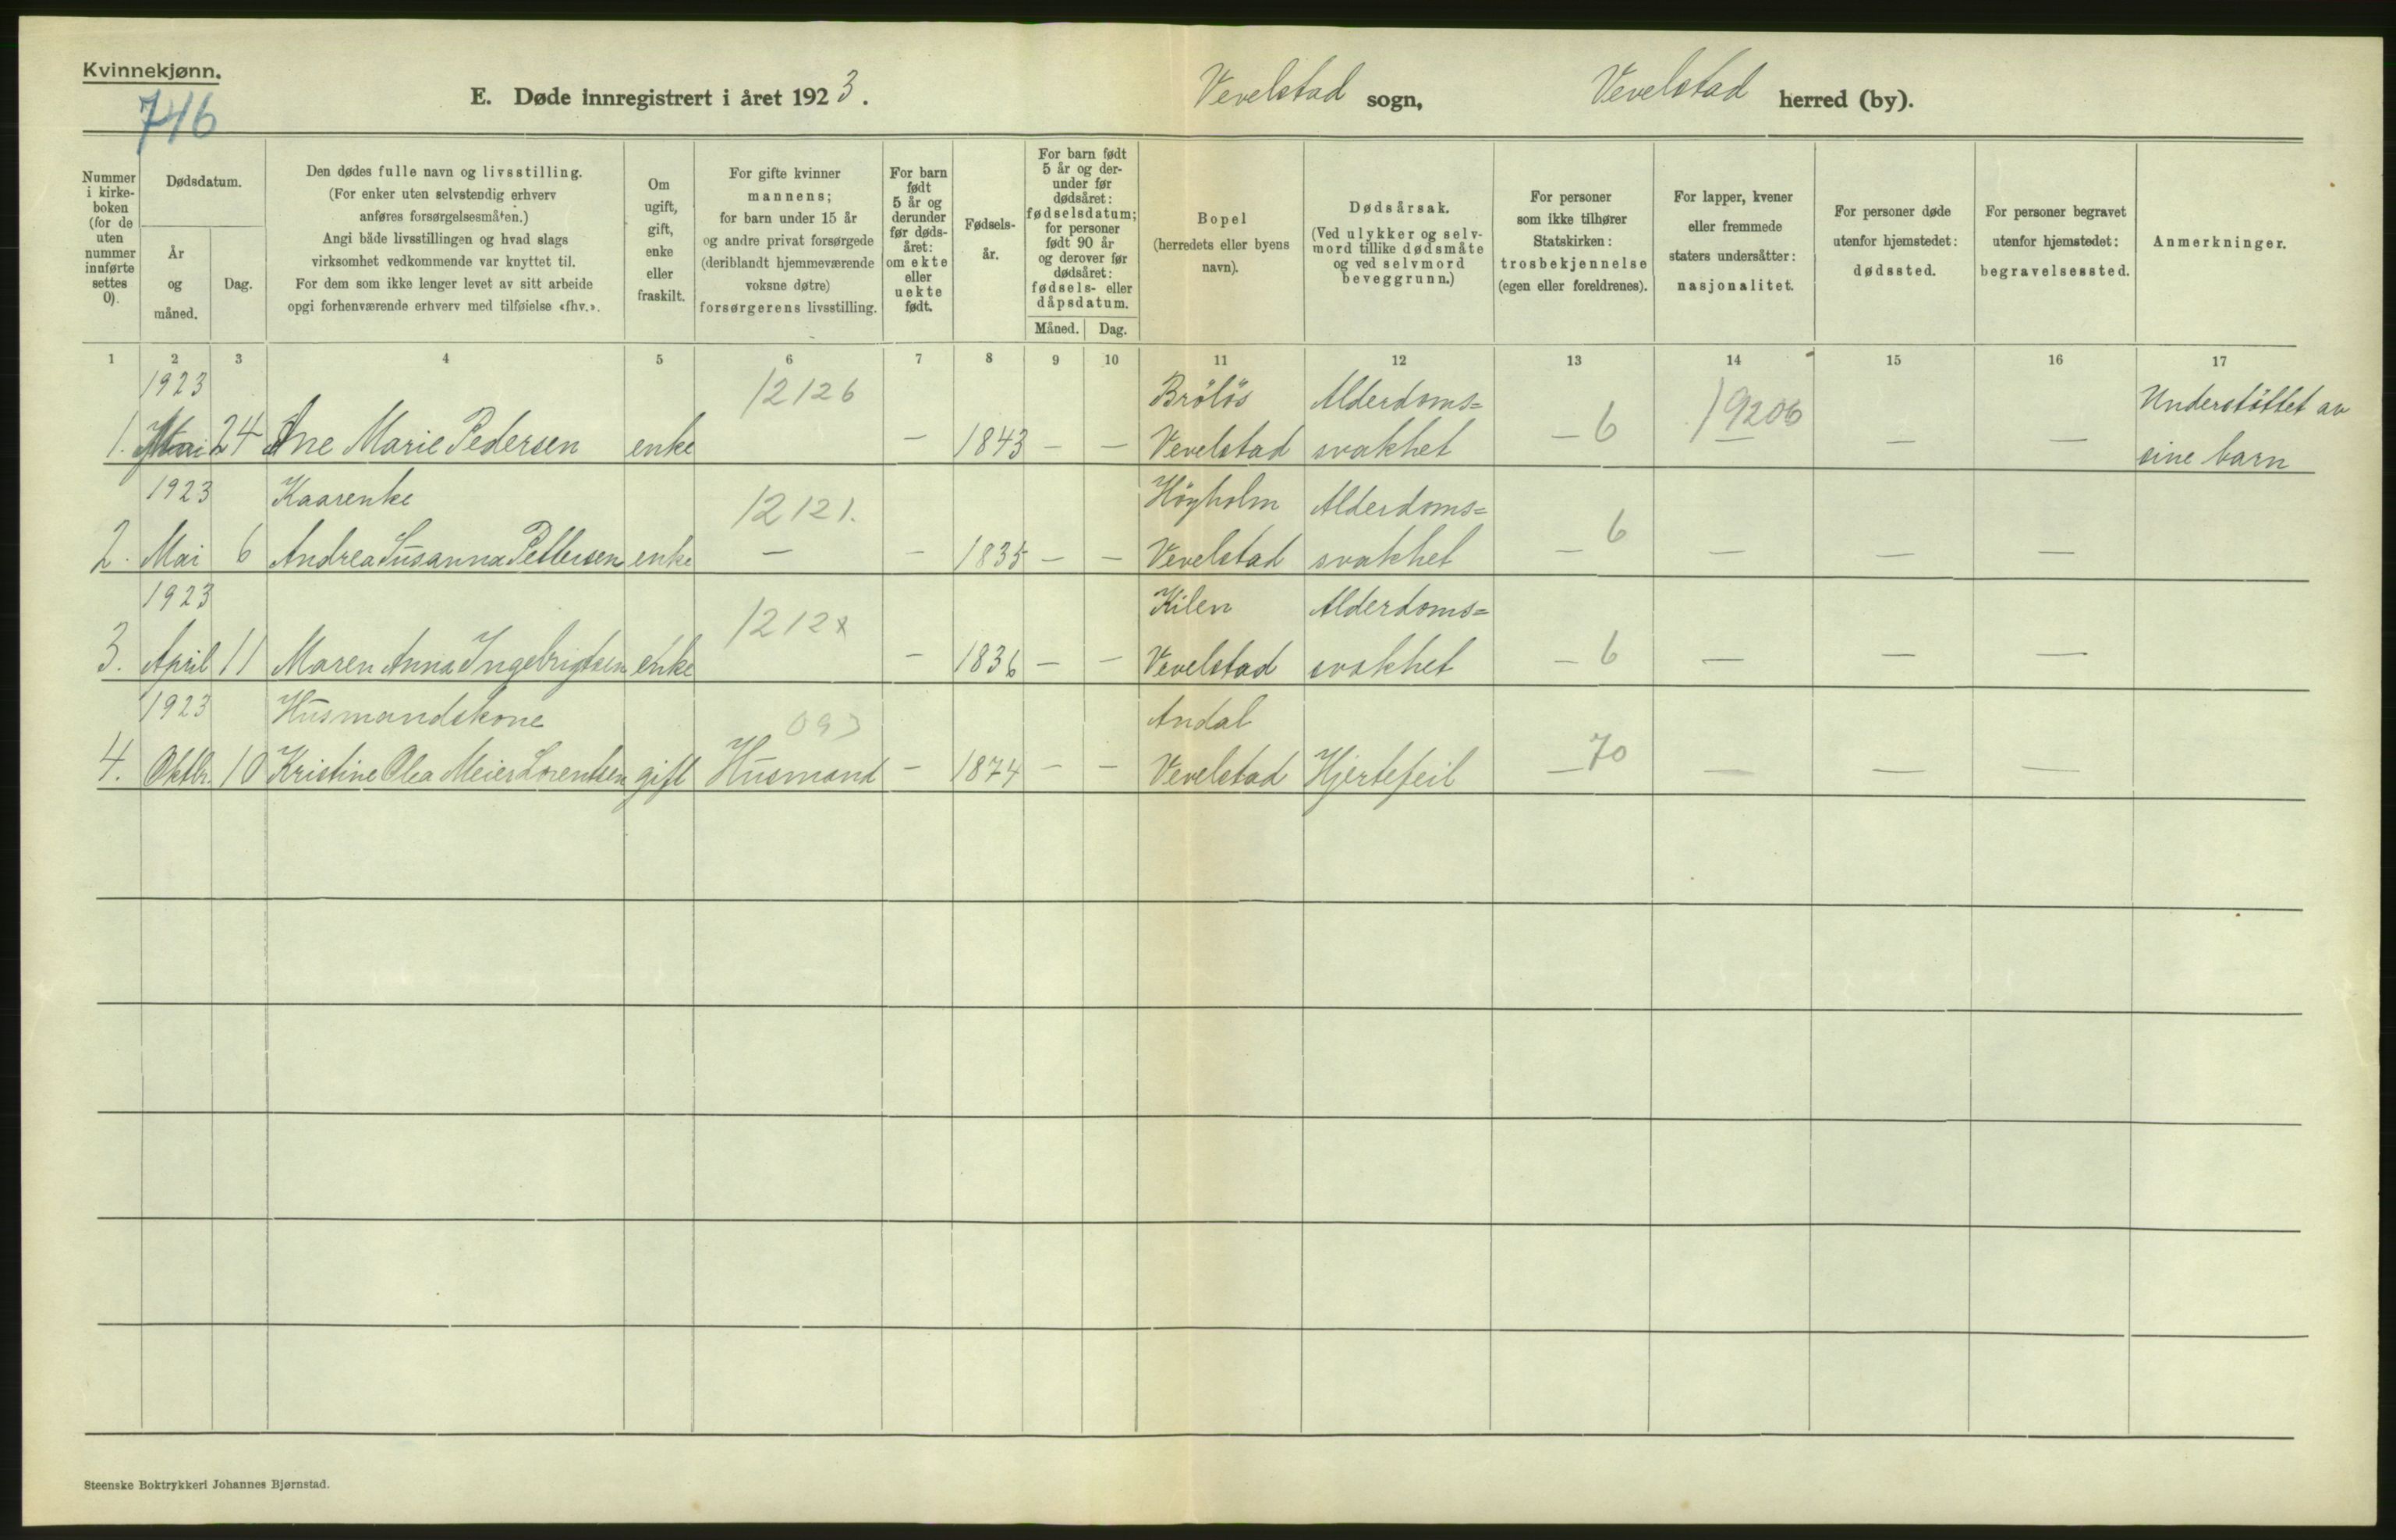 Kvinnekjønn.
746
E. Døde innregistrert i året 1923. Vevelstad sogn, Vevelstad herred (by).
Nummer i kirke- boken (for de uten nummer innførte settes 0).
Dødsdatum.
År og måned.
Dag.
Den dødes fulle navn og livsstilling.
(For enker uten selvstendig erhverv
anføres forsørgelsesmåten.)
Angi både livsstillingen og hvad slags
virksomhet vedkommende var knyttet til.
For dem som ikke lenger levet av sitt arbeide
opgi forhenværende erhverv med tilføielse «fhv.».
Om ugift, gift, enke eller fraskilt.
For gifte kvinner
mannens;
for barn under 15 år
og andre privat forsørgede
(deriblandt hjemmeværende
voksne døtre)
forsørgerens livsstilling.
For barn født 5 år og derunder før døds- året: om ekte eller uekte født.
Fødsels- år.
For barn født 5 år og der- under før dødsåret: fødselsdatum; for personer født 90 år og derover før dødsåret: fødsels- eller dåpsdatum.
Måned. Dag.
Bopel
(herredets eller byens
navn).
Dødsårsak.
(Ved ulykker og selv-
mord tillike dødsmåte
og ved selvmord
beveggrunn.)
For personer
som ikke tilhører
Statskirken:
trosbekjennelse
(egen eller foreldrenes).
For lapper, kvener
eller fremmede
staters undersåtter:
nasjonalitet.
For personer døde
utenfor hjemstedet:
dødssted.
For personer begravet
utenfor hjemstedet:
begravelsessted.
Anmerkninger.
1 2 3 4 5 6 7 8 9 10 11 12 13 14 15 16 17
1923 12126 Brölös Alderdoms= Understöttet av
1. Mai 24 Ane Marie Pedersen enke – 1843 – – Vevelstad svakhet – 6 19206 – – – sine barn
1923 Kaarenke 12121. Höyholm Alderdoms=
2. Mai 6 Andrea Susanna Pettersen enke – – 1835 – – Vevelstad svakhet – 6 – – –
1923 1212x Kilen Alderdoms=
3. April 11 Maren Anna Ingebrigtsen enke – 1836 – – Vevelstad svakhet – 6 – – –
1923 Husmandskone 093 Andal
4. Oktbr. 10 Kristine Olea Meier Lorentsen gift Husmand – 1874 – – Vevelstad Hjertefeil – 70 – – –
Steenske Boktrykkeri Johannes Bjørnstad.